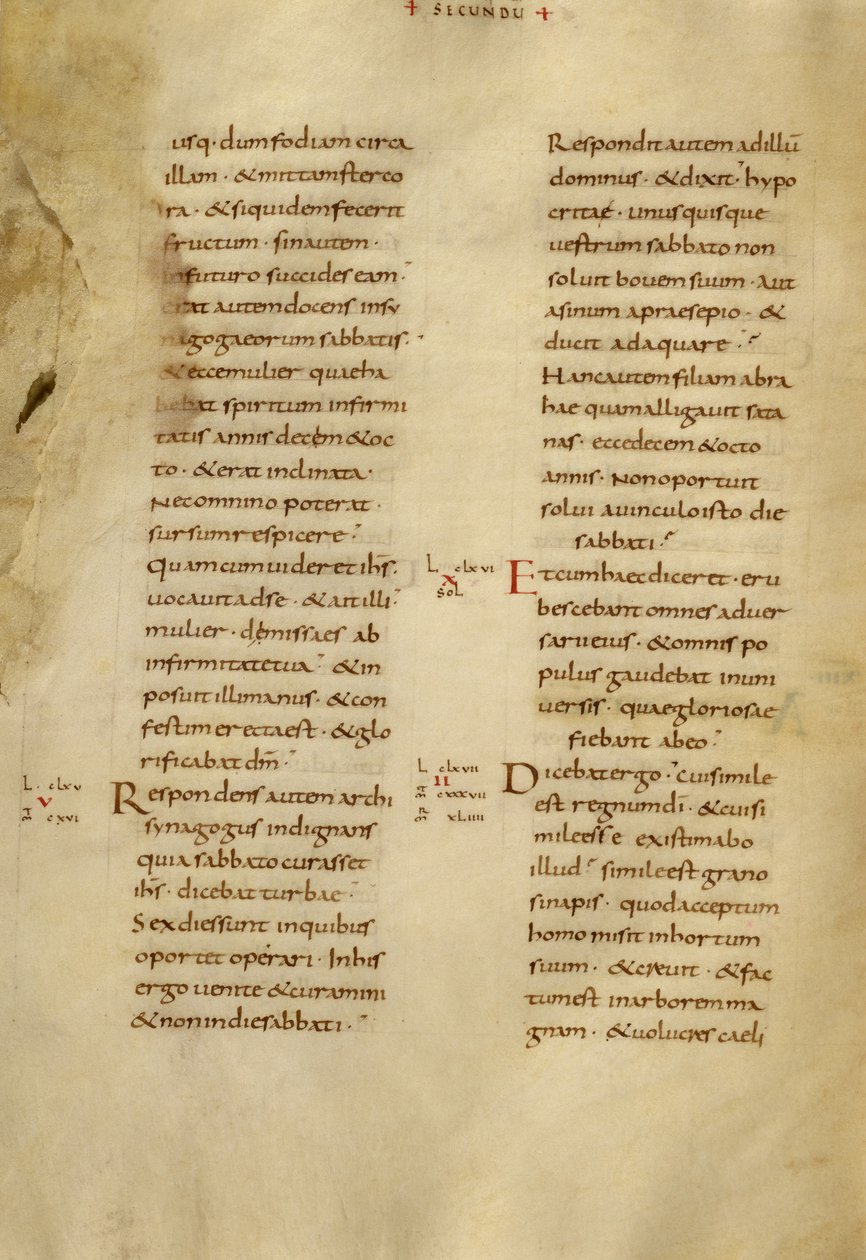 + SECUNDU +
usq· dum fodiam circa
illam · & mittam sterco
ra · & siquidem fecerit
fructum · sin autem ·
in futuro succides eam ·
erat autem docens in sy
nagoga eorum sabbatis ·
& ecce mulier quae ha
bebat spiritum infirmi
tatis annis decem & oc
to · & erat inclinata ·
Nec omnino poterat ·
sursum respicere ·
Quam cum uideret ih̅s ·
uocauit ad se · & ait illi ·
mulier · dimissa es ab
infirmitate tua · & in
posuit illi manus · & con
festim erecta est · & glo
rificabat dm̅ ·
L · clxv
V
m̅ cxvi
Respondens autem archi
synagogus indignans
quia sabbato curasset
ih̅s · dicebat turbae ·
Sex dies sunt in quibus
oportet operari · In his
ergo uenite & curamini
& non in die sabbati ·
Respondit autem ad illu̅
dominus · & dixit · hypo
critae · unusquisque
uestrum sabbato non
soluit bouem suum · Aut
asinum a praesepio · &
ducit adaquare ·
Hanc autem filiam abra
hae quam alligauit sata
nas · ecce decem & octo
annis · Non oportuit
solui a uinculo isto die
sabbati ·
L clxvi
X
SOL
Et cum haec diceret · eru
bescebant omnes aduer
sarii eius · & omnis po
pulus gaudebat in uni
uersis · quae gloriosae
fiebant ab eo ·
L clxvii
II
m̅ cxxxvii
m̅r xliiii
Dicebat ergo · cui simile
est regnum di̅ · & cui si
mile esse existimabo
illud · simile est grano
sinapis · quod acceptum
homo misit in hortum
suum · & creuit · & fac
tum est in arborem ma
gnam · & uolucres caeli